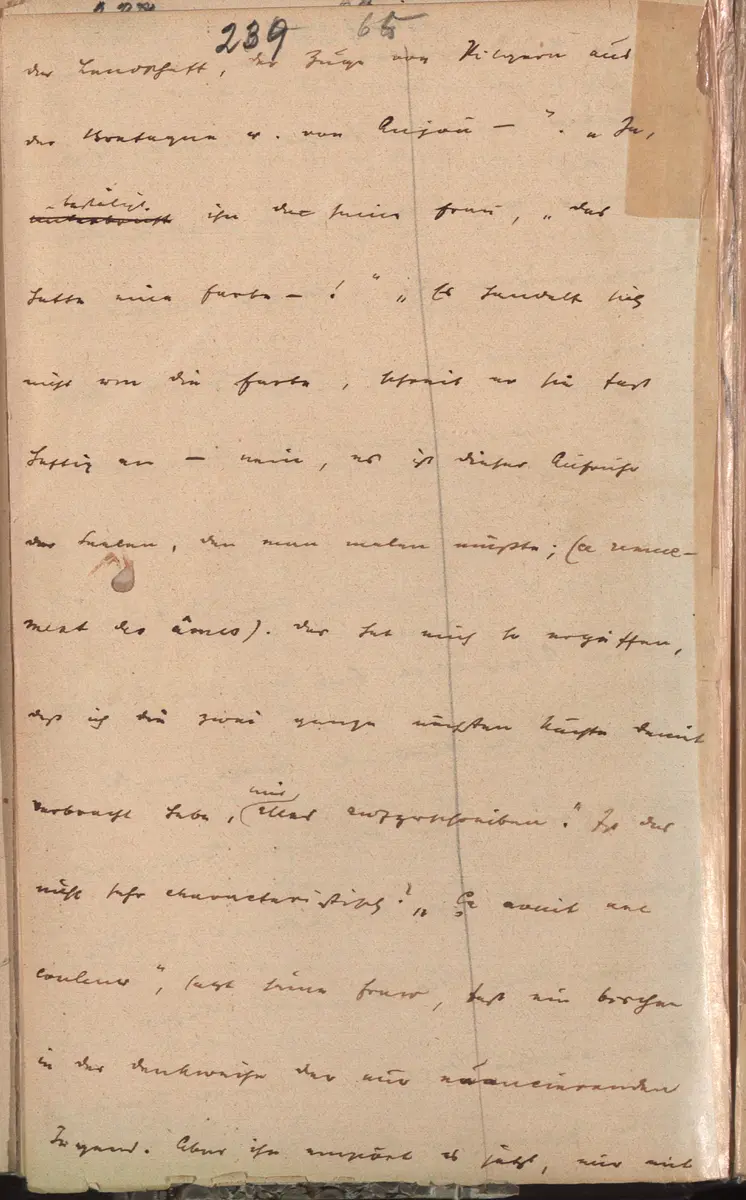 239 65
der Landschaft, der Züge von Pilgern aus
der Bretagne u. von Anjou – ". „Ja,
bestätigt
ihr da seine Frau, „das
hatte eine Farbe – ! " „Es handelt sich
nicht um die Farbe, schreit er sie fast
heftig an – nein, es ist dieser Aufruhr
der Seelen, den man malen müßte; (ce remue-
ment des âmes). Das hat mich so ergriffen,
daß ich die zwei ganze nächsten Nächte damit
verbracht habe, mir alles aufzuschreiben." Ist das
nicht sehr characteristisch? „Ça avait une
couleur", sagt seine Frau, fast ein bischen
in der Denkweise der nur nüancierenden
Jugend. Aber ihn empört es jetzt, nur mit